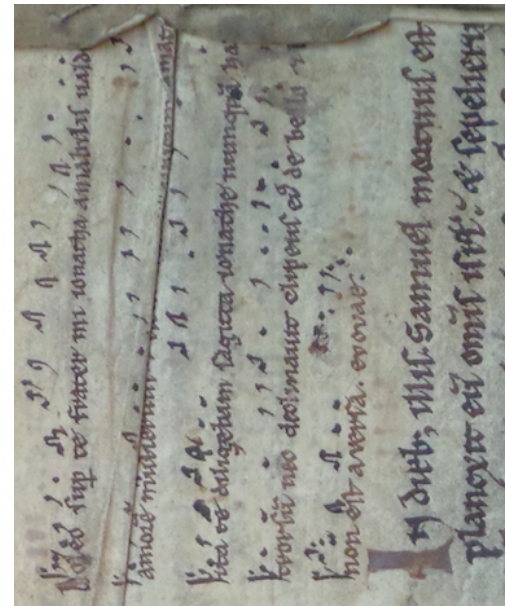 Doleo sup te frater mi ionatha amabilis uald
amorē mulierum unicum amat
ita te diligebam Sagitta ionathe numquā
trorsū nec declinauit clipeus ei de bello
non est auersa. evovae.
In dieb; illis. Samuel mortuus est
planxit eū omīs isrl. & sepelieru